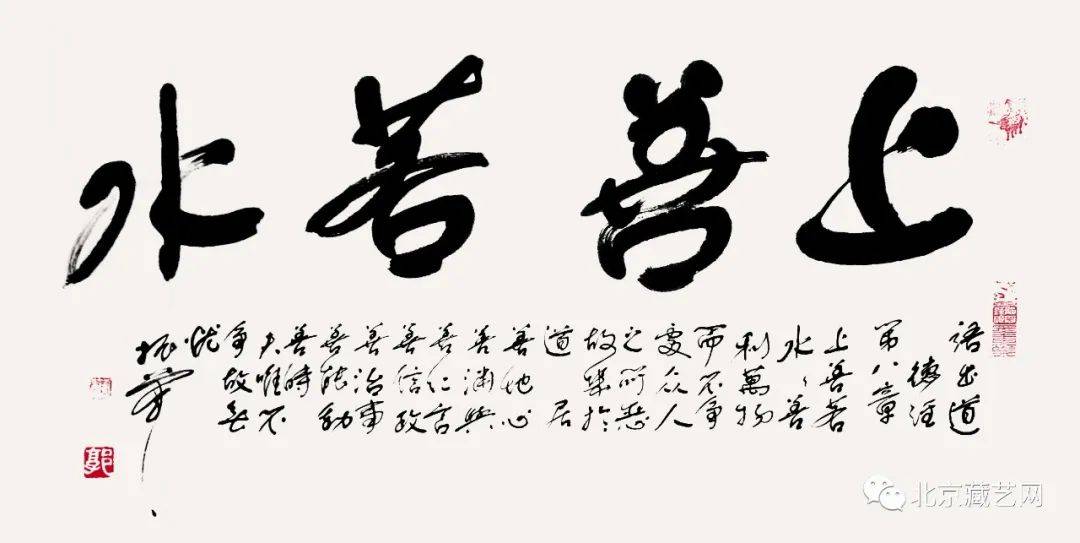 上善若水
語出道
德經
第八章
上善若
水〻善
利萬物
而不爭
處众人
之所惡
故幾於
道居
善地心
善渊與
善仁言
善信政
善治事
善能動
善時
夫唯不
爭故無
忧
郭
北京藏艺网